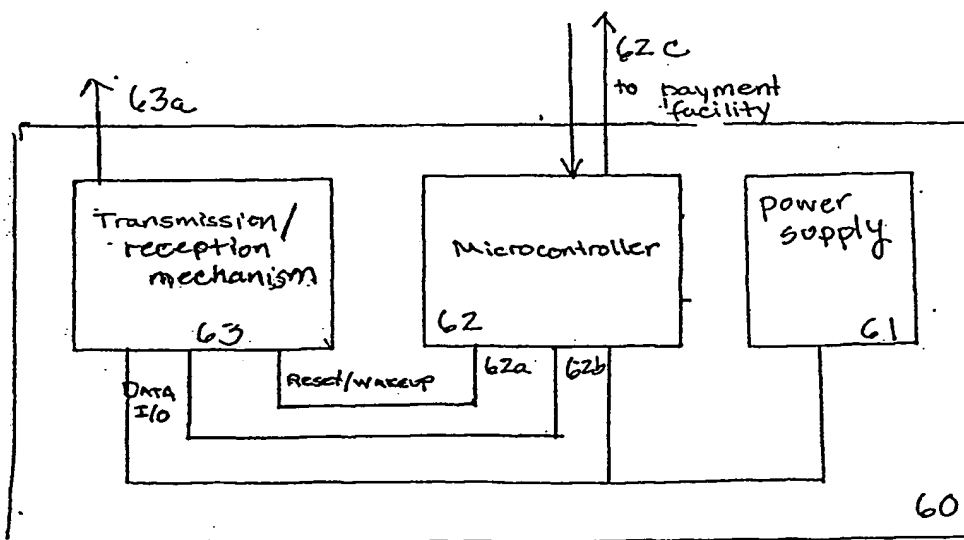 63a
62c
to payment
facility
Transmission/
reception
mechanism
63
Microcontroller
62
power
supply
61
DATA
I/O
Reset/WAKEUP
62a
62b
60